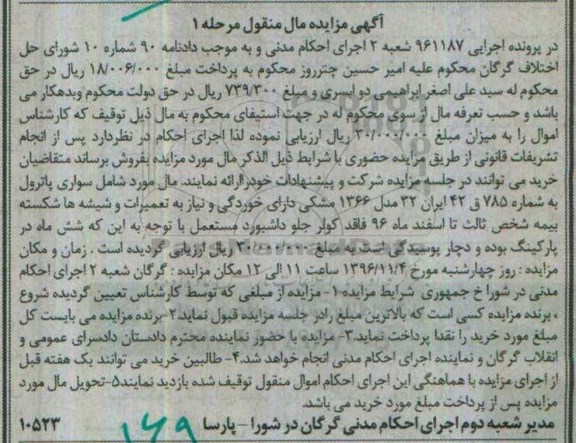 آگهی مزایده مال منقول مرحله ۱
در پرونده اجرایی ۹۶۱۱۸۷ شعبه ۲ اجرای احکام مدنی و به موجب دادنامه ۹۰ شماره ۱۰ شورای حل
اختلاف گرگان محکوم علیه امیر حسین چترروز محکوم به پرداخت مبلغ ۱۸/۰۰۶/۰۰۰ ریال در حق
محکوم له سید علی اصغر ابراهیمی دو ابسری و مبلغ ۷۳۹/۳۰۰ ریال در حق دولت محکوم وبدهکار می
باشد و حسب تعرفه مال از سوی محکوم له در جهت استیفای محکوم به مال ذیل توقیف که کارشناس
اموال را به میزان مبلغ ۲۰/۰۰۰/۰۰۰ ریال ارزیابی نموده لذا اجرای احکام در نظردارد پس از انجام
تشریفات قانونی از طریق مزایده حضوری با شرایط ذیل الذکر مال مورد مزایده بفروش برساند متقاضیان
خرید می توانند در جلسه مزایده شرکت و پیشنهادات خودراارائه نمایند. مال مورد شامل سواری پاترول
به شماره ۷۸۵ ق ۴۲ ایران ۳۲ مدل ۱۳۶۶ مشکی دارای خوردگی و نیاز به تعمیرات و شیشه ها شکسته
بیمه شخص ثالث تا اسفند ماه ۹۶ فاقد کولر جلو داشبورد مستعمل با توجه به این که شش ماه در
پارکینگ بوده و دچار پوسیدگی است به مبلغ ۲۰/۰۰۰/۰۰۰ ریال ارزیابی گردیده است . زمان و مکان
مزایده : روز چهارشنبه مورخ ۱۳۹۶/۱۱/۴ ساعت ۱۱ الی ۱۲ مکان مزایده : گرگان شعبه ۲ اجرای احکام
مدنی در شورا خ جمهوری شرایط مزایده ۱- مزایده از مبلغی که توسط کارشناس تعیین گردیده شروع
، برنده مزایده کسی است که بالاترین مبلغ رادر جلسه مزایده قبول نماید ۲-برنده مزایده می بایست کل
مبلغ مورد خرید را نقدا پرداخت نماید.۳- مزایده با حضور نماینده محترم دادستان دادسرای عمومی و
انقلاب گرگان و نماینده اجرای احکام مدنی انجام خواهد شد.۴- طالبین خرید می توانند یک هفته قبل
از اجرای مزایده با هماهنگی این اجرای احکام اموال منقول توقیف شده بازدید نمایند۵-تحویل مال مورد
مزایده پس از پرداخت مبلغ مورد خرید می باشد.
مدیر شعبه دوم اجرای احکام مدنی گرگان در شورا – پارسا ۱۰۵۲۳
۱۶۹